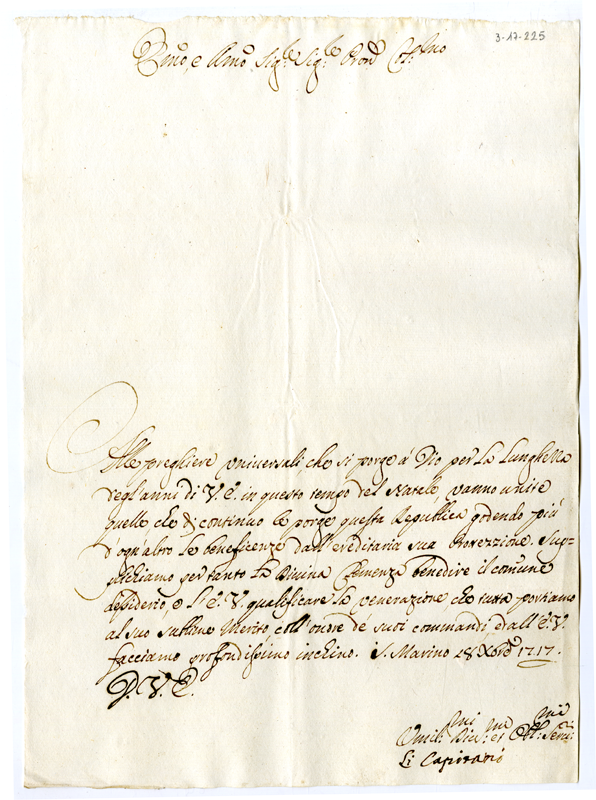 3-17-225
Emo, e Rmo Sigre Sigre Pron Col.mo
Alle preghiere universali, che si porge à Dio per la Lunghezza
degl'anni di V. E. in questo tempo del Natale, vanno unite
quelle che di continuo le porge questa Republica godendo più
d'ogn'altro le beneficenze dall'ereditaria sua Protezzione. Sup-
plichiamo per tanto La Divina Clemenza benedire il comune
desiderio, e l'E. V. qualificare la venerazione, che tutta portiamo
al suo sublime Merito, coll'onore de suoi commandi, e dall'E. V.
facciamo profondissimo inchino. S. Marino 18 Xbre 1717.
D. V. E.
Umil.mi Div.mi et Obl.mi Serv.ri
Li Capitani